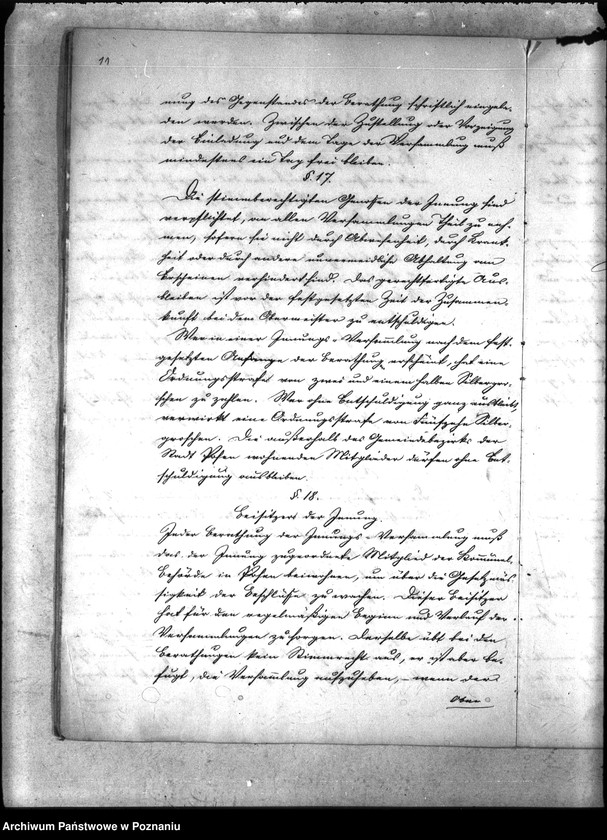 11
nung des Gegenstandes der Berathung schriftlich eingela-
den werden. Zwischen der Zustellung oder Vorzeigung
der Einladung und dem Tage der Versammlung muß
mindestens ein Tag frei bleiben.
§. 17.
Die stimmberechtigten Genossen der Innung sind
verpflichtet, an allen Versammlungen Theil zu neh-
men, sofern sie nicht durch Abwesenheit, durch Krank-
heit oder durch andere unvermeidliche Abhaltung am
Erscheinen verhindert sind. Das gerechtfertigte Aus-
bleiben ist vor der festgesetzten Zeit der Zusammen-
kunft bei dem Obermeister zu entschuldigen.
Wer in einer Innungs-Versammlung nach dem fest-
gesetzten Anfange der Berathung erscheint, hat eine
Ordnungsstrafe von zwei und einem halben Silbergro-
schen zu zahlen. Wer ohne Entschuldigung ganz ausbleibt,
verwirkt eine Ordnungsstrafe von Fünfzehn Silber-
groschen. Die außerhalb des Gemeindebezirks der
Stadt Posen wohnenden Mitglieder dürfen ohne Ent-
schuldigung ausbleiben.
§. 18.
Beisitzer der Innung.
Jeder Berathung der Innungs-Versammlung muß
das der Innung zugeordnete Mitglied der Kommunal-
Behörde in Posen beiwohnen, um über die Gesetzmä-
ßigkeit der Beschlüsse zu wachen. Dieser Beisitzer
hat für den regelmäßigen Beginn und Verlauf der
Versammlungen zu sorgen. Derselbe übt bei den
Berathungen kein Stimmrecht aus, er ist aber be-
fugt, die Versammlung aufzuheben, wenn der
Ober
Archiwum Państwowe w Poznaniu